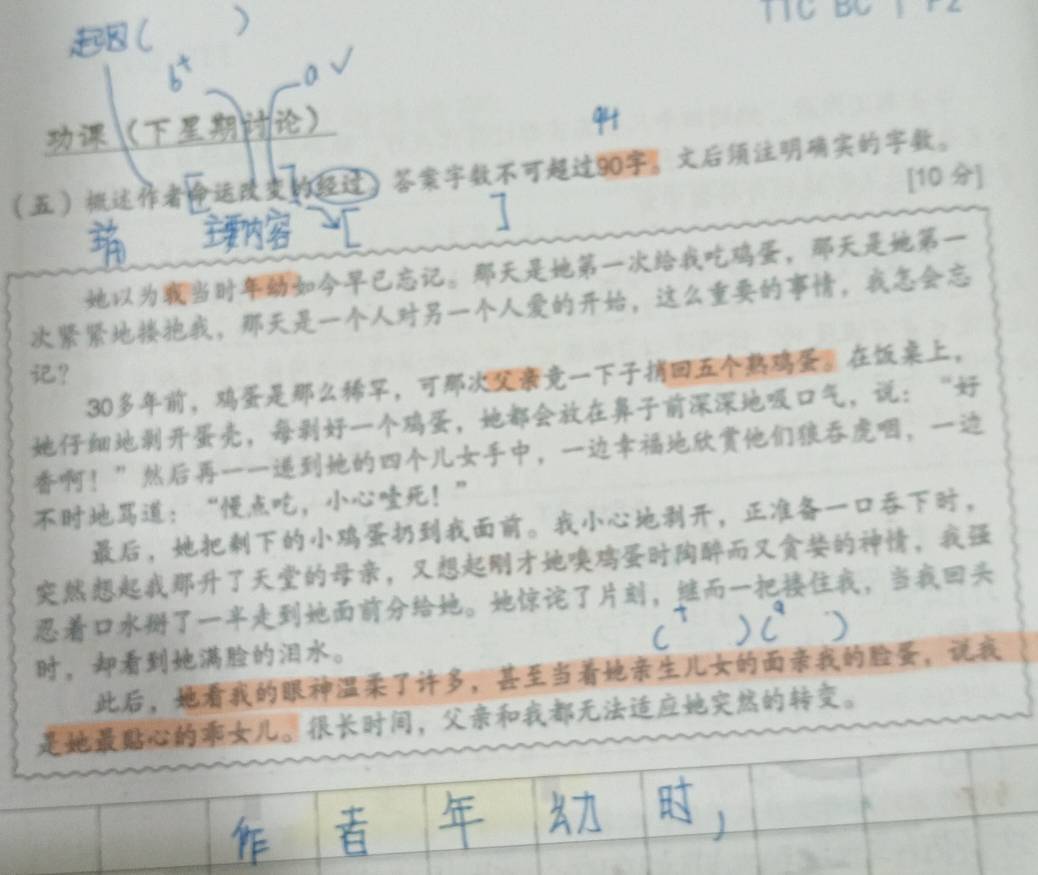 TTC BC 1 P2
起因(    )
b⁺    a ✓
功课（下星期讨论）
94
（五）概述作者命运改变的经过，答案字数不可超过90字。文后须注明确实的字数。
[10 分]
主角    主要内容    [    ]
她以为我当时年幼如今早已忘记。那天是她第一次给我吃鸡蛋，那天是她第一
次紧紧地搂抱我，那天是一个人对另一个人爱的开始，这么重要的事情，我怎会忘
记？
30多年前，鸡蛋是那么稀罕，可那次父亲竟一下子捎回五个熟鸡蛋。在饭桌上，
她仔细地剥开蛋壳，每剥好一个鸡蛋，她都会放在鼻子前深深地吸口气，说：“好
香啊！”然后再一一递到她的四个儿女手中，一边幸福地欣赏他们狼吞虎咽，一边
不时地骂道：“慢点吃，小心噎死！”
最后，她把剩下的小鸡蛋扔到我面前。我小心地剥开，正准备一口吞下时，
突然想起我那升了天堂的母亲，又想起刚才她嗅鸡蛋时陶醉而又贪婪的神情，我强
忍着口水掰了一半走到她面前分给她。她惊诧了片刻，继而一把搂住我，当我回头
时，却看到她满脸的泪水。
(    )(    )
此后，她看我的眼神温柔了许多，甚至当着她亲生儿女的面亲我的脸蛋，说我
是她最贴心的乖女儿。很长时间，父亲和我都无法适应她突然的转变。
作者年幼时，